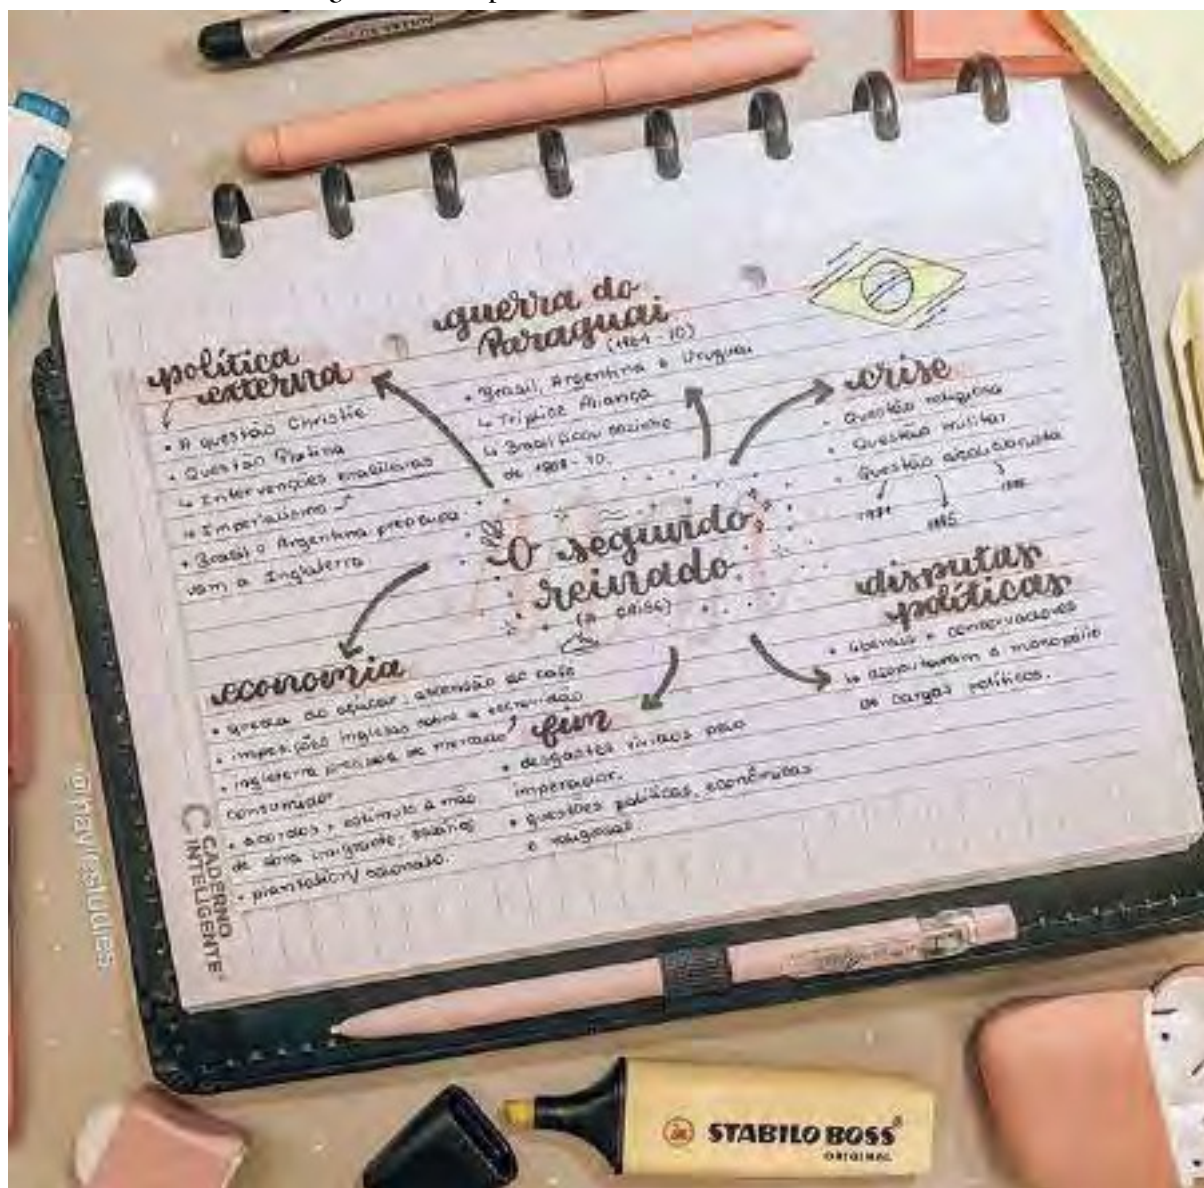 política
externa
• A questão Christie
• Questão Platina
↳ Intervenções brasileiras
↳ Imperialismo
• Brasil e Argentina preocupa
vam a Inglaterra.
guerra do
Paraguai
• Brasil, Argentina e Uruguai
↳ Tríplice Aliança
↳ Brasil ficou sozinho
crise
• Questão religiosa
• Questão militar
• Questão abolicionista
1885
O segundo
reinado
(A CRISE)
disputas
políticas
• liberais e conservadores
↳ aceitavam o monopólio
de cargos políticos.
economia
• queda do açúcar, ascensão do café
• imposições inglesas sobre a escravidão
• inglaterra precisava de mercado
consumidor
• acordos, estímulo à mão
de obra imigrante, salários
• plantation/ colonato.
fim
• desgastes vividos pelo
imperador.
• questões políticas, econômicas
e religiosas
C CADERNO
INTELIGENTE
STABILO BOSS
ORIGINAL